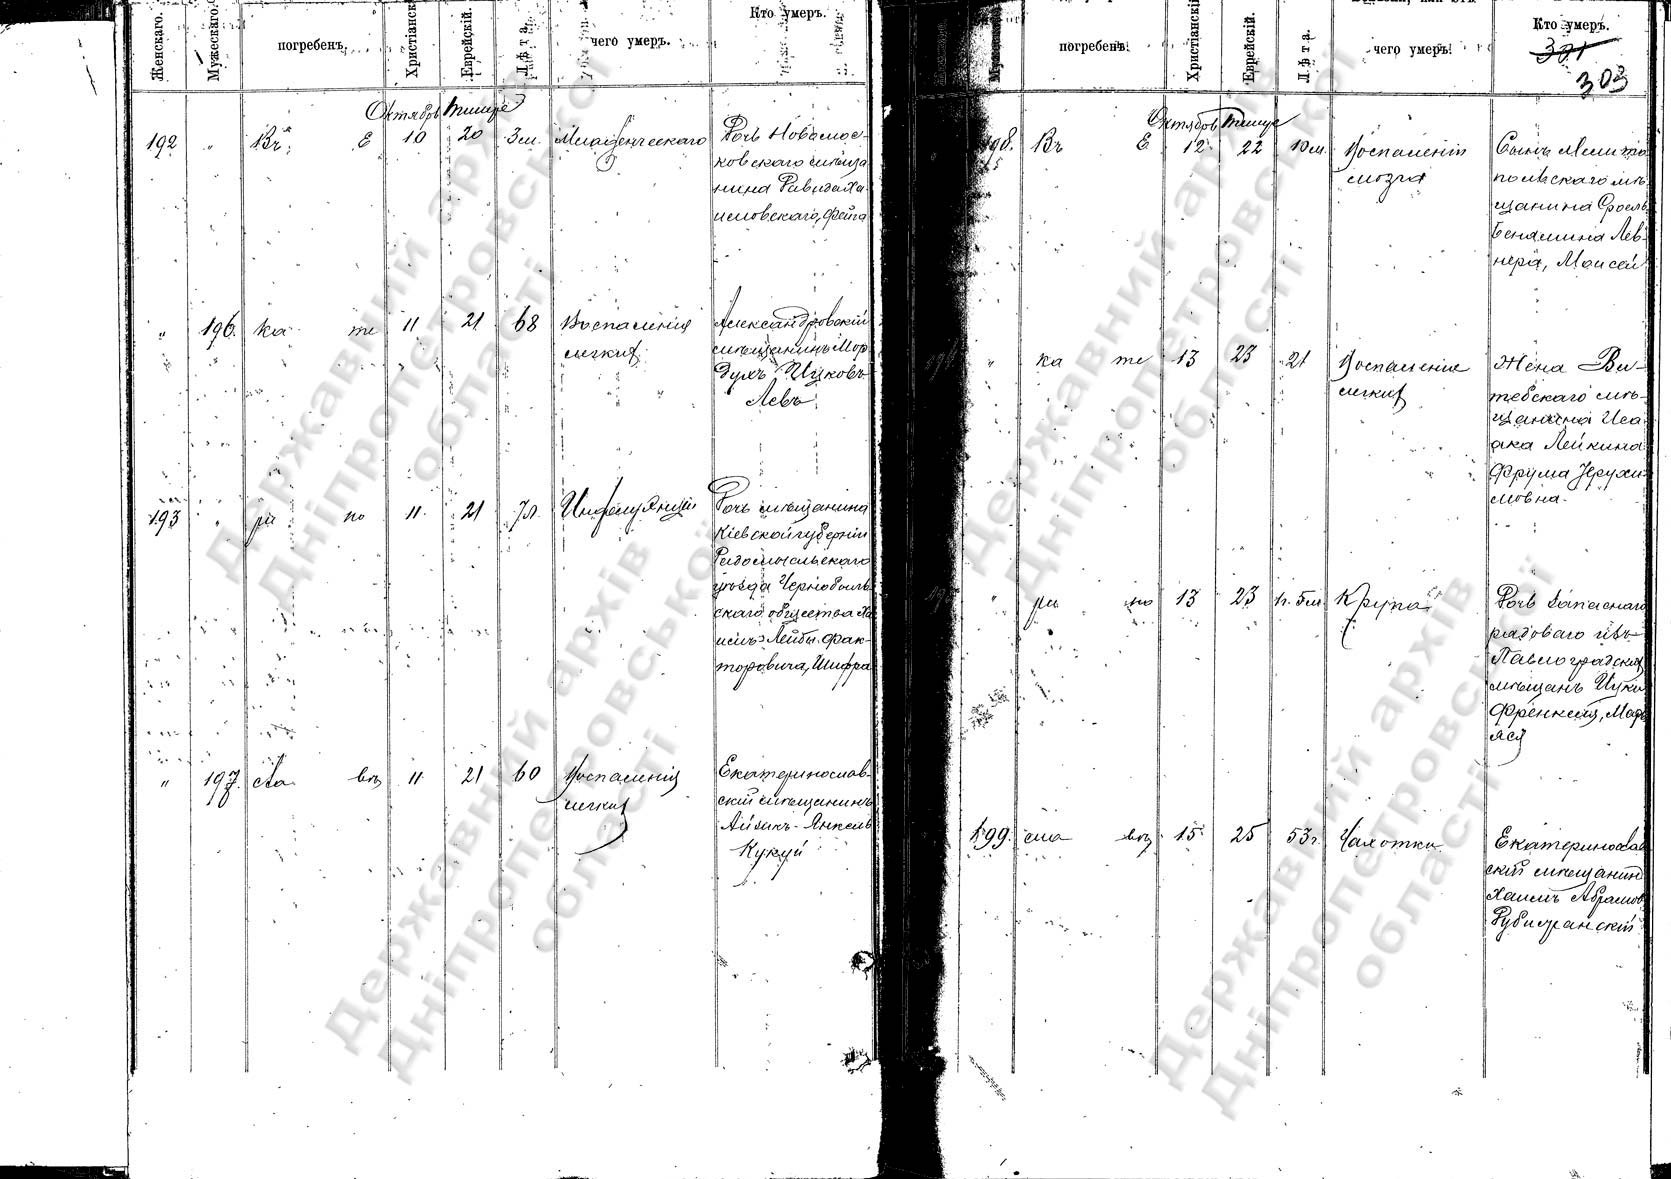 Женскаго.
Мужескаго.
погребенъ.
Христіанск
Еврейскій.
Лѣта.
чего умеръ.
Кто умеръ.
Октябрь Тишре
192 " Въ Е 10 20 3 м. Младенческаго
Дочь Новомос-
ковскаго мѣща
нина Давида Ха
имовскаго, Фейга
" 196. ка те 11 21 68 Воспаленія
легкихъ
Александровскій
мѣщанинъ Мор
духъ Ицковъ
Левъ
193 " ри но 11 21 7 л.
Дочь мѣщанина
Кіевской губерніи
Радомысльскаго
уѣзда Чернобыль
скаго общества Ха
имъ Лейбы Фак-
торовича, Шифра
" 197. сла вѣ 11 21 60 Воспаленія
легкихъ
Екатеринослав-
скій мѣщанинъ
Айзикъ-Янкель
Кукуй
погребенъ.
Христіанскій
Еврейскій.
Лѣта.
чего умеръ.
Кто умеръ.
301
303
Октябрь Тишре
198. Въ Е 12 22 10 м. Воспаленія
мозга
Сынъ Мелито
польскаго мѣ
щанина Сроель
Беньямина Лев-
нера, Моисей
" ка те 13 23 21 Воспаленіе
легкихъ
Жена Ви-
тебскаго мѣ-
щанина Иса
ака Лейкина
Фрума Іерухи
мовна.
" ри но 13 23 1 г. 5 м. Крупа
Дочь запаснаго
рядоваго изъ
Павлоградскихъ
мѣщанъ Ицки
Френкеля, Марь
яся
199. сла вѣ 15 25 53 г. Чахотки
Екатеринослав
скій мѣщанинъ
Хаимъ Абрамовъ
Рубижанскій
Державний архів
Дніпропетровської
області
Державний архів
Дніпропетровської
області
Державний архів
Дніпропетровської
області
Державний архів
Дніпропетровської
області